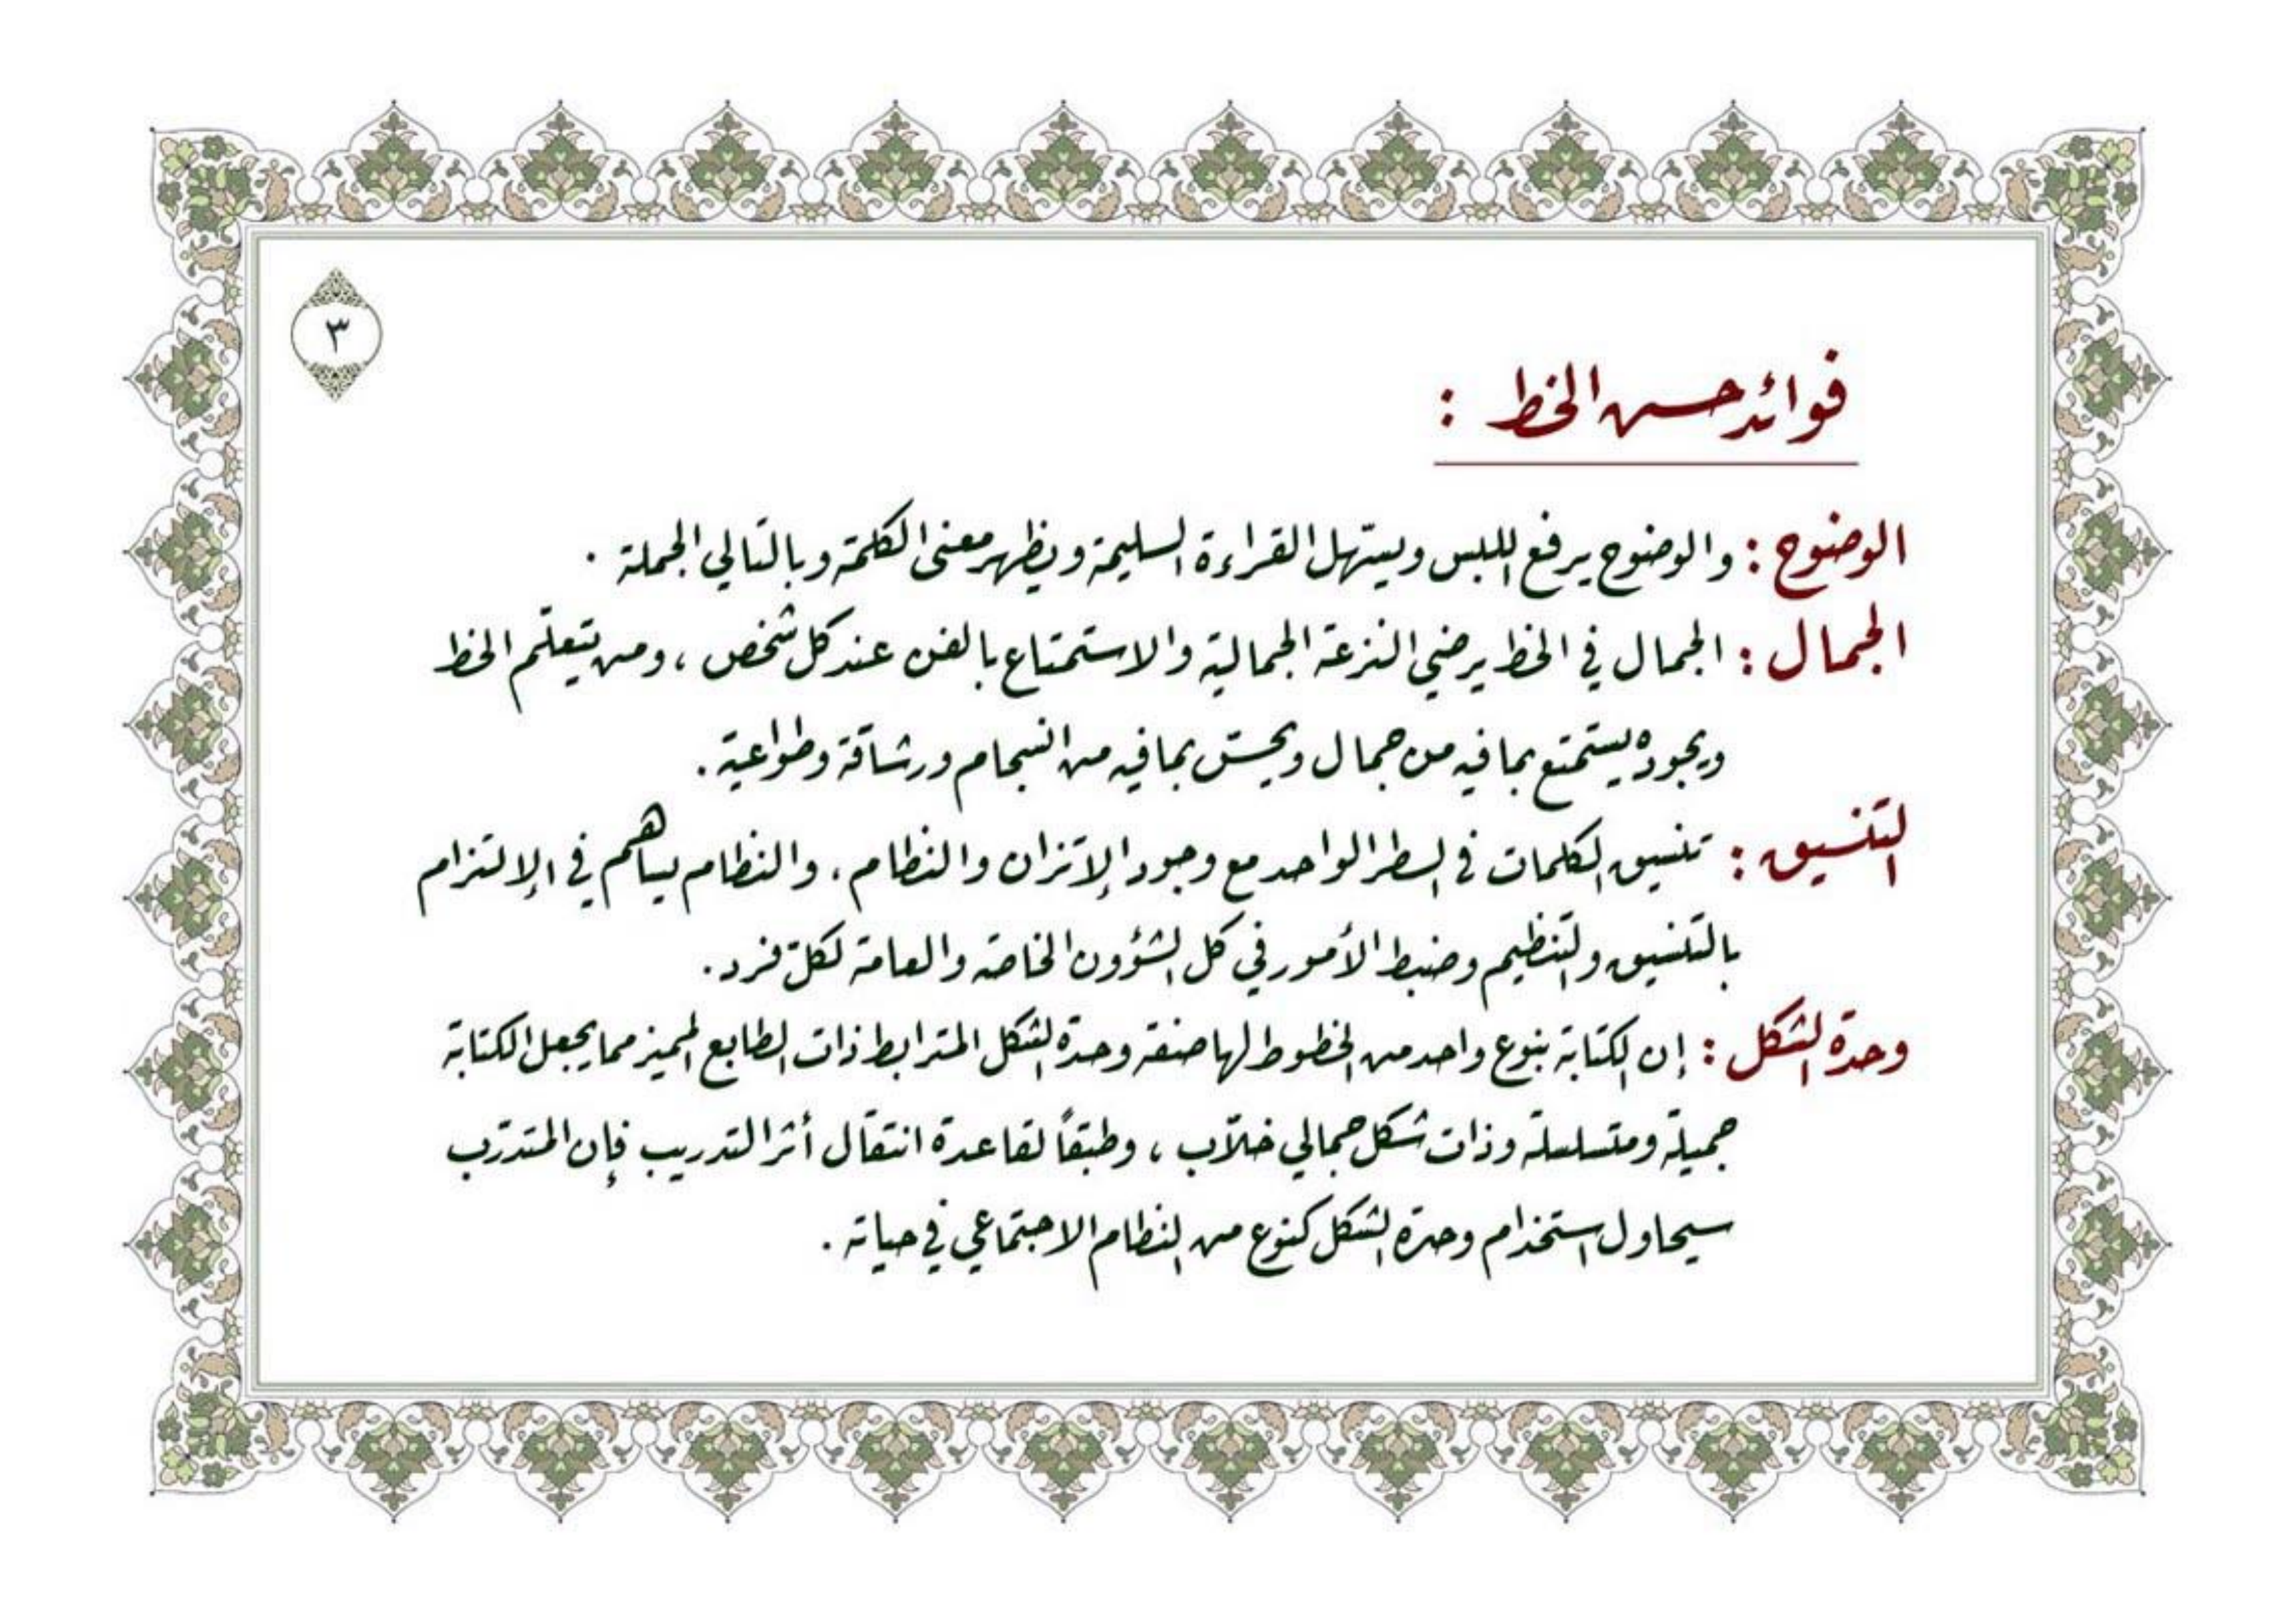 ٣
فوائد حسن الخط :
الوضوح : والوضوح يرفع اللبس ويسهّل القراءة السليمة ويظهر معنى الكلمة وبالتالي الجملة .
الجمال : الجمال في الخط يرضي النزعة الجمالية والاستمتاع بالفن عند كل شخص ، ومن يتعلّم الخط
ويجوده يستمتع بما فيه من جمال ويحسّ بما فيه من انسجام ورشاقة وطواعية .
التنسيق : تنسيق الكلمات في السطر الواحد مع وجود الإتزان والنظام ، والنظام يساهم في الإلتزام
بالتنسيق والتنظيم وضبط الأمور في كل الشؤون الخاصة والعامة لكلّ فرد .
وحدة الشكل : إن الكتابة بنوع واحد من الخطوط لها صفة وحدة الشكل المترابط ذات الطابع المميز مما يجعل الكتابة
جميلة ومتسلسلة وذات شكل جمالي خلاّب ، وطبقاً لقاعدة انتقال أثر التدريب فإن المتدرّب
سيحاول استخدام وحدة الشكل كنوع من النظام الاجتماعي في حياته .